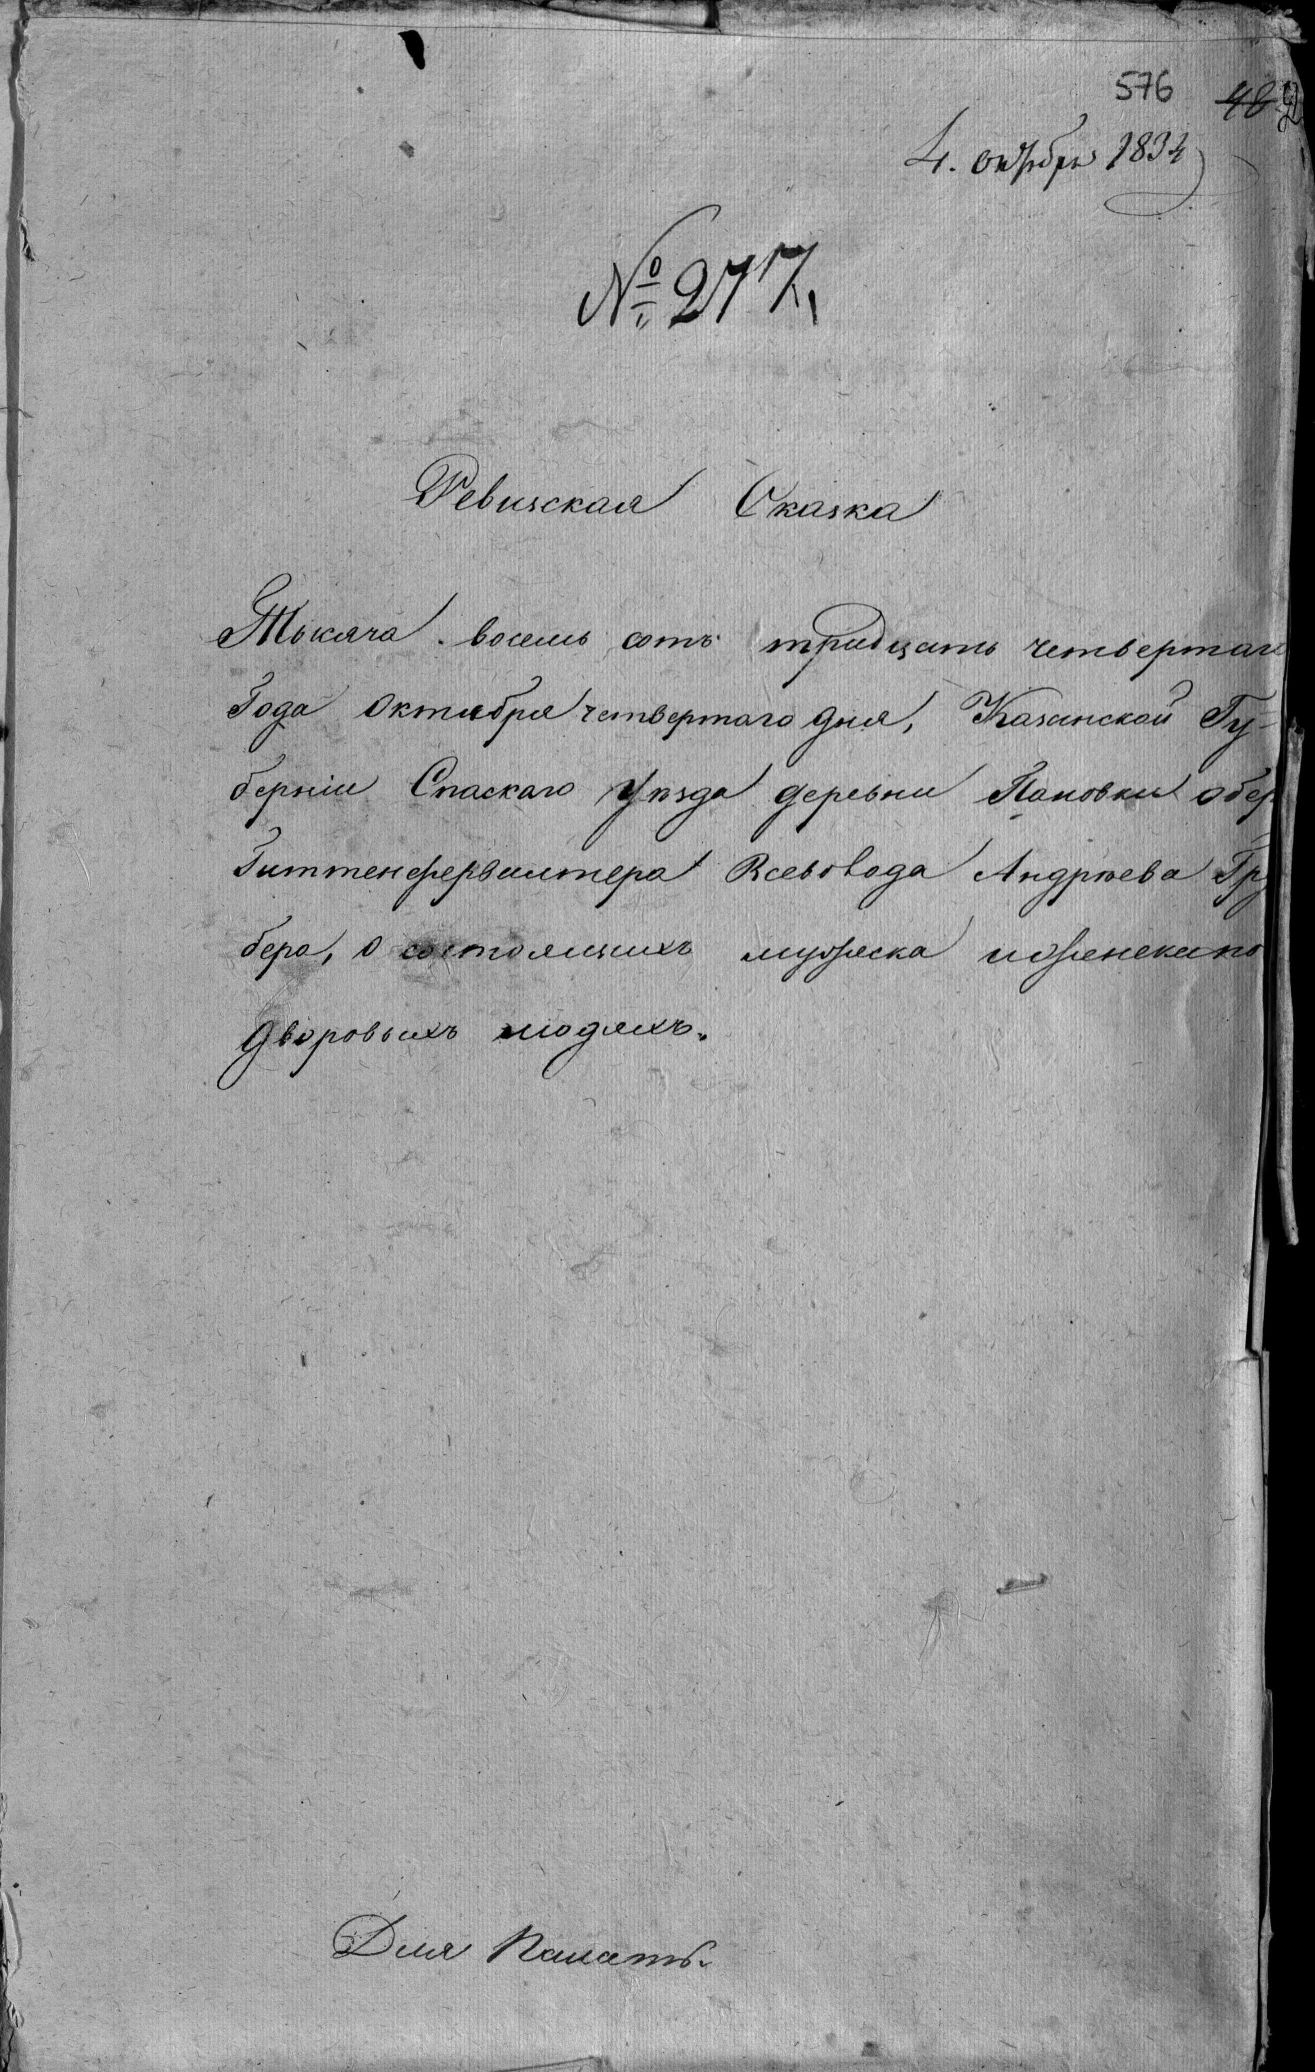 576
4. октября 1834
№ 277.
Ревизская Сказка
Тысяча восемь сотъ тридцать четвертаго
Года Октября четвертаго дня, Казанской Гу-
берніи Спаскаго Уѣзда деревни Пановки обер
Гиттенфервалтера Всеволода Андрѣева Гру
бера, о состоящихъ мужеска и женска по
дворовыхъ людяхъ.
Для Палаты.